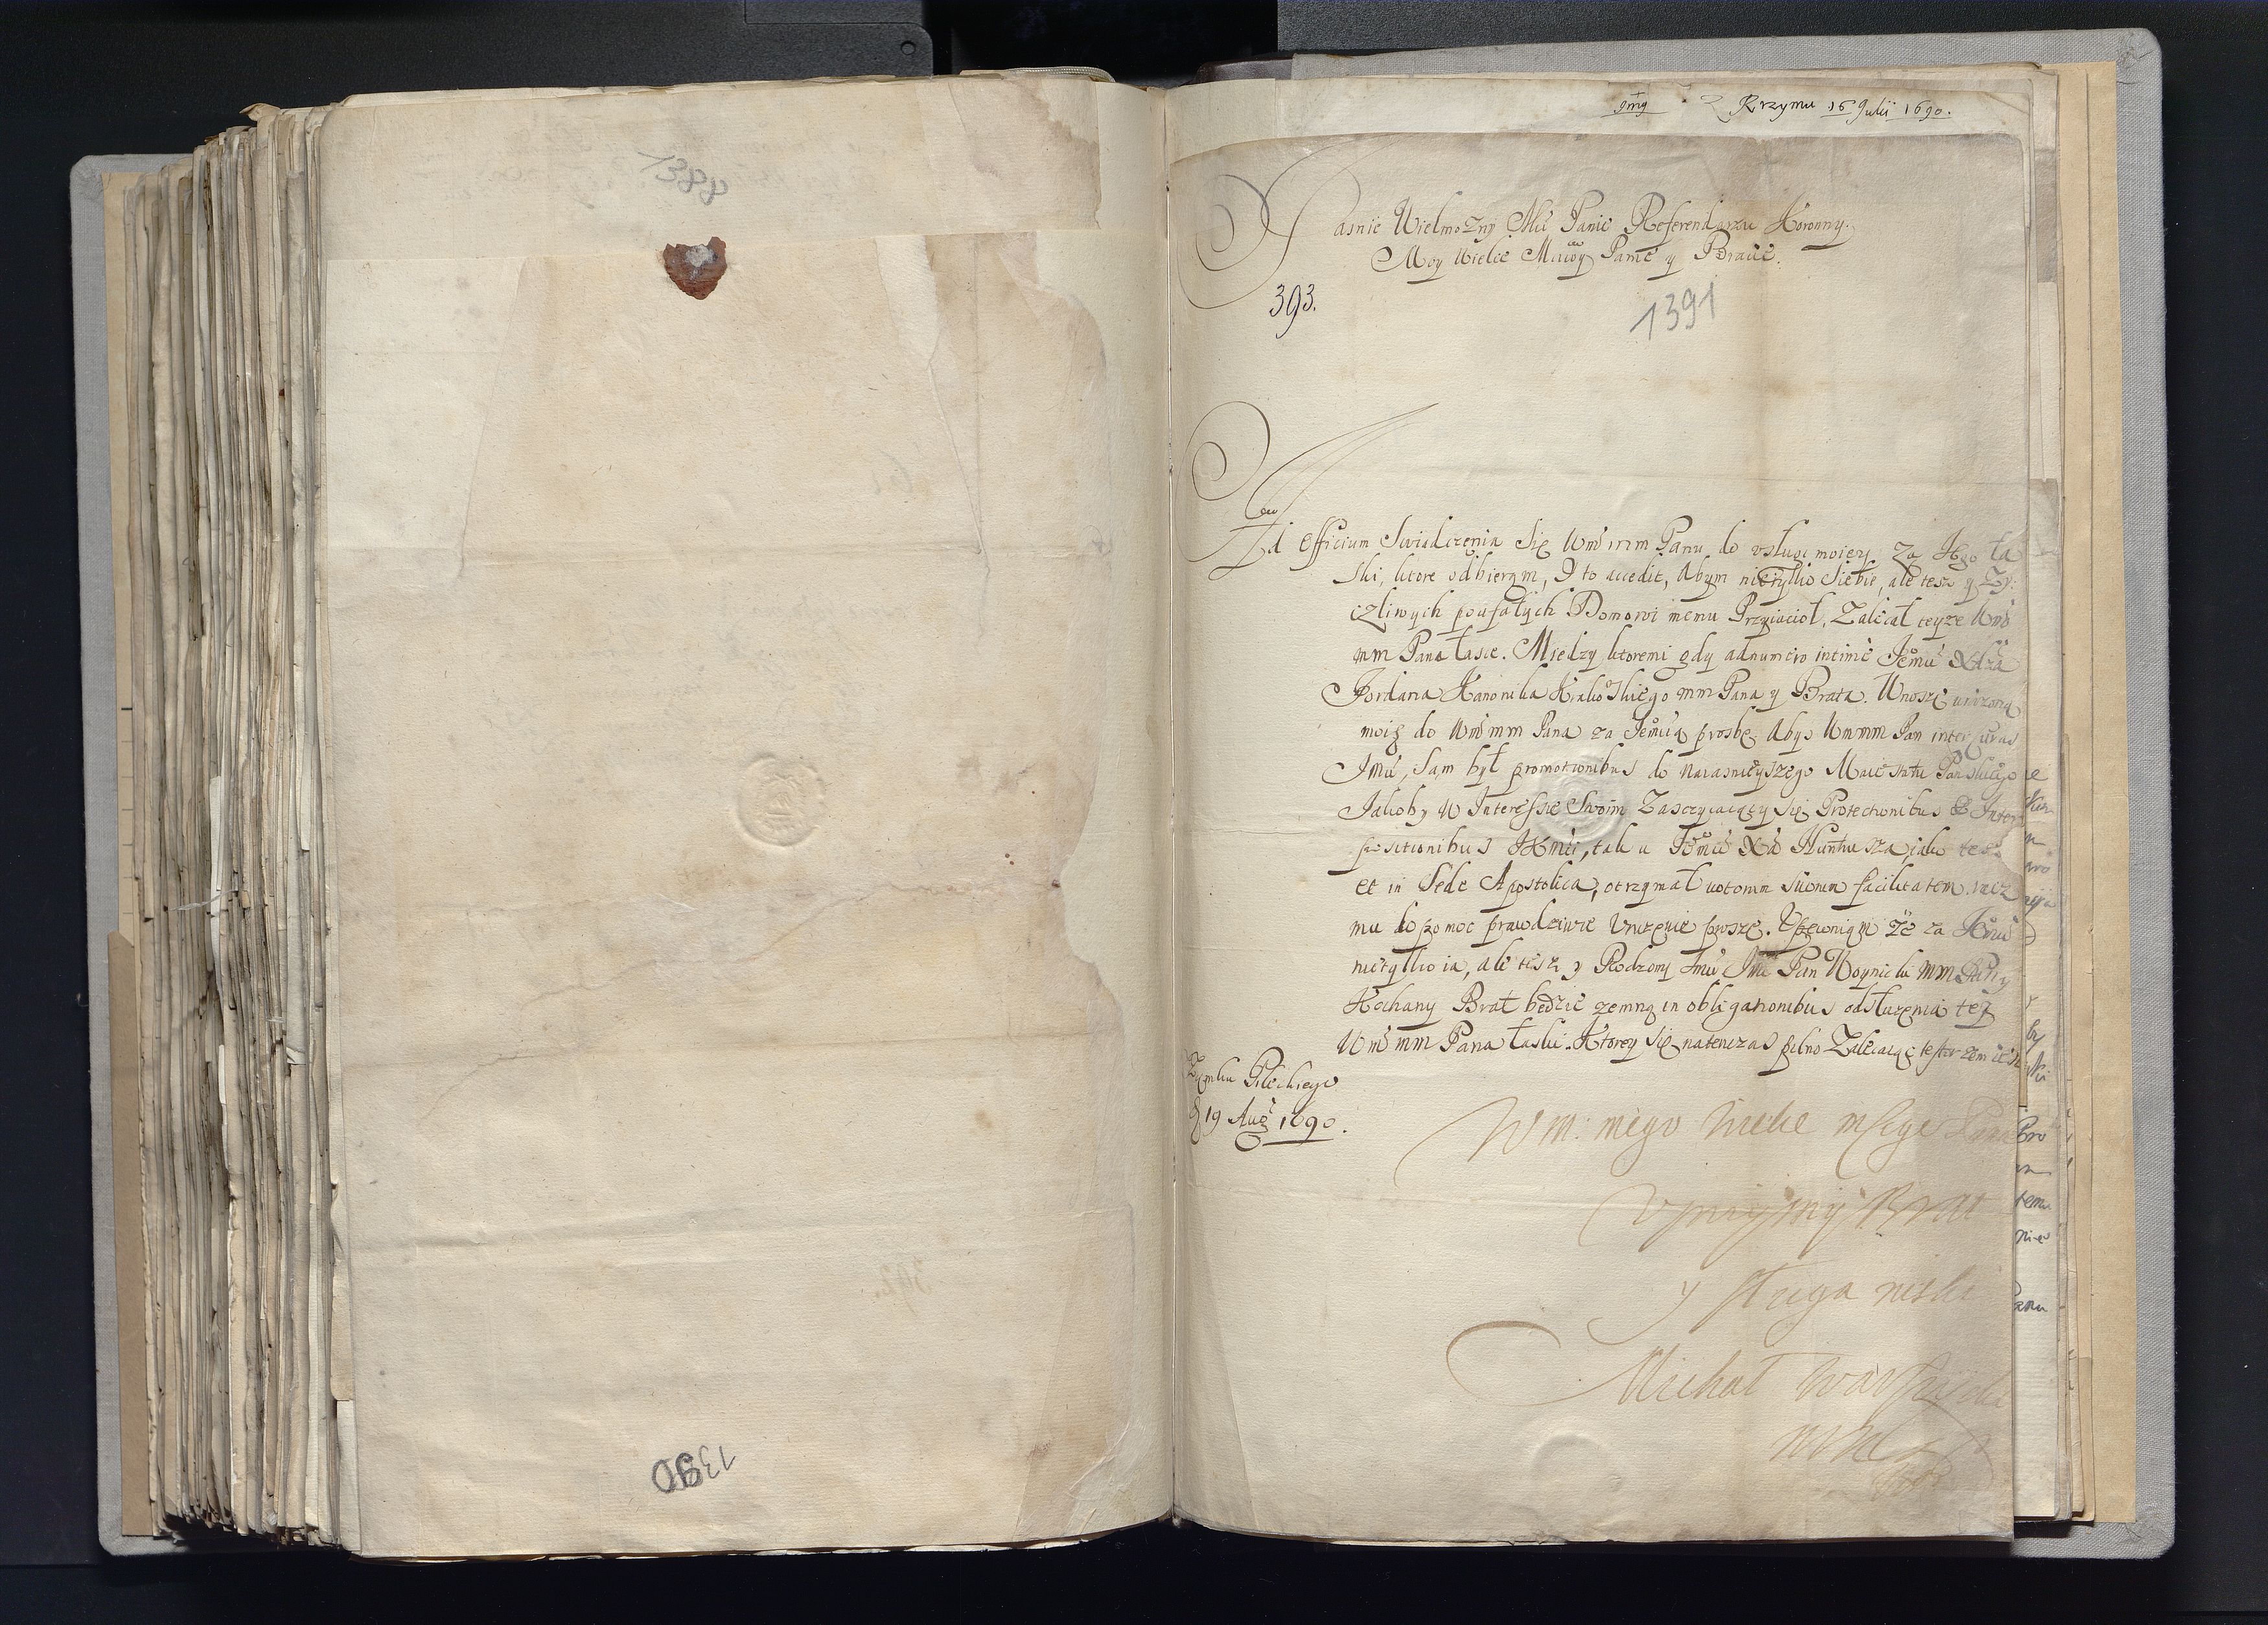 1388
1390
Z Rzymu 16 Julii 1690.
Jasnie Wielmozny Mci Panie Referendarzu Koronny.
Moy Wielce Mciwy Panie y Bracie.
393.
1391
Ad Officium Swiadczenia Się Wmc mm Panu do vsług moiey, Za Jego ła
ski, ktore odbieram, I to accedit, Abym nietylko Siebie, ale tesz y Zy:
czliwych poufałych Domowi memu Przyiacioł, Zalecał teyze Wmc
mm Pana łasce. Między ktoremi gdy adnumero intime Jemci Xdza
Jordana Kanonika Krakoskiego mm Pana y Brata. Wnoszę
moią do Wmc mm Pana za Jemcią prosbę, Abys Wmmm Pan inter curas
Jmci, Sam był promotionibus do Naiasnieyszego Maiestatu Panskiego
Jakoby w Interessie Swoim Zasczycaiący się Protectionibus & Inter
positionibus JKmci, tak u Jemci Xa Nuntiusza, iako tesz
et in Sede Apostolica, otrzymał votorum suorum facilitatem.
mu do pomoc prawdziwie Vnizenie proszę. Vpewniam Ze za Jemci
nietylko ia, ale tesz y Rodzony Jmci Jmc Pan Woynicki mm Pan y
Kochany Brat będzie zemną in obligationibus odsłuzenia tey
Wmc mm Pana łaski. Ktorey się natenczas pilno Zalecaiąc
Z Zamku Pileckiego
d 19 Aug 1690.
Wm: mego wielce mscego Pana
Vprzeymy Brat
y sługa niski
Michał Warszycki